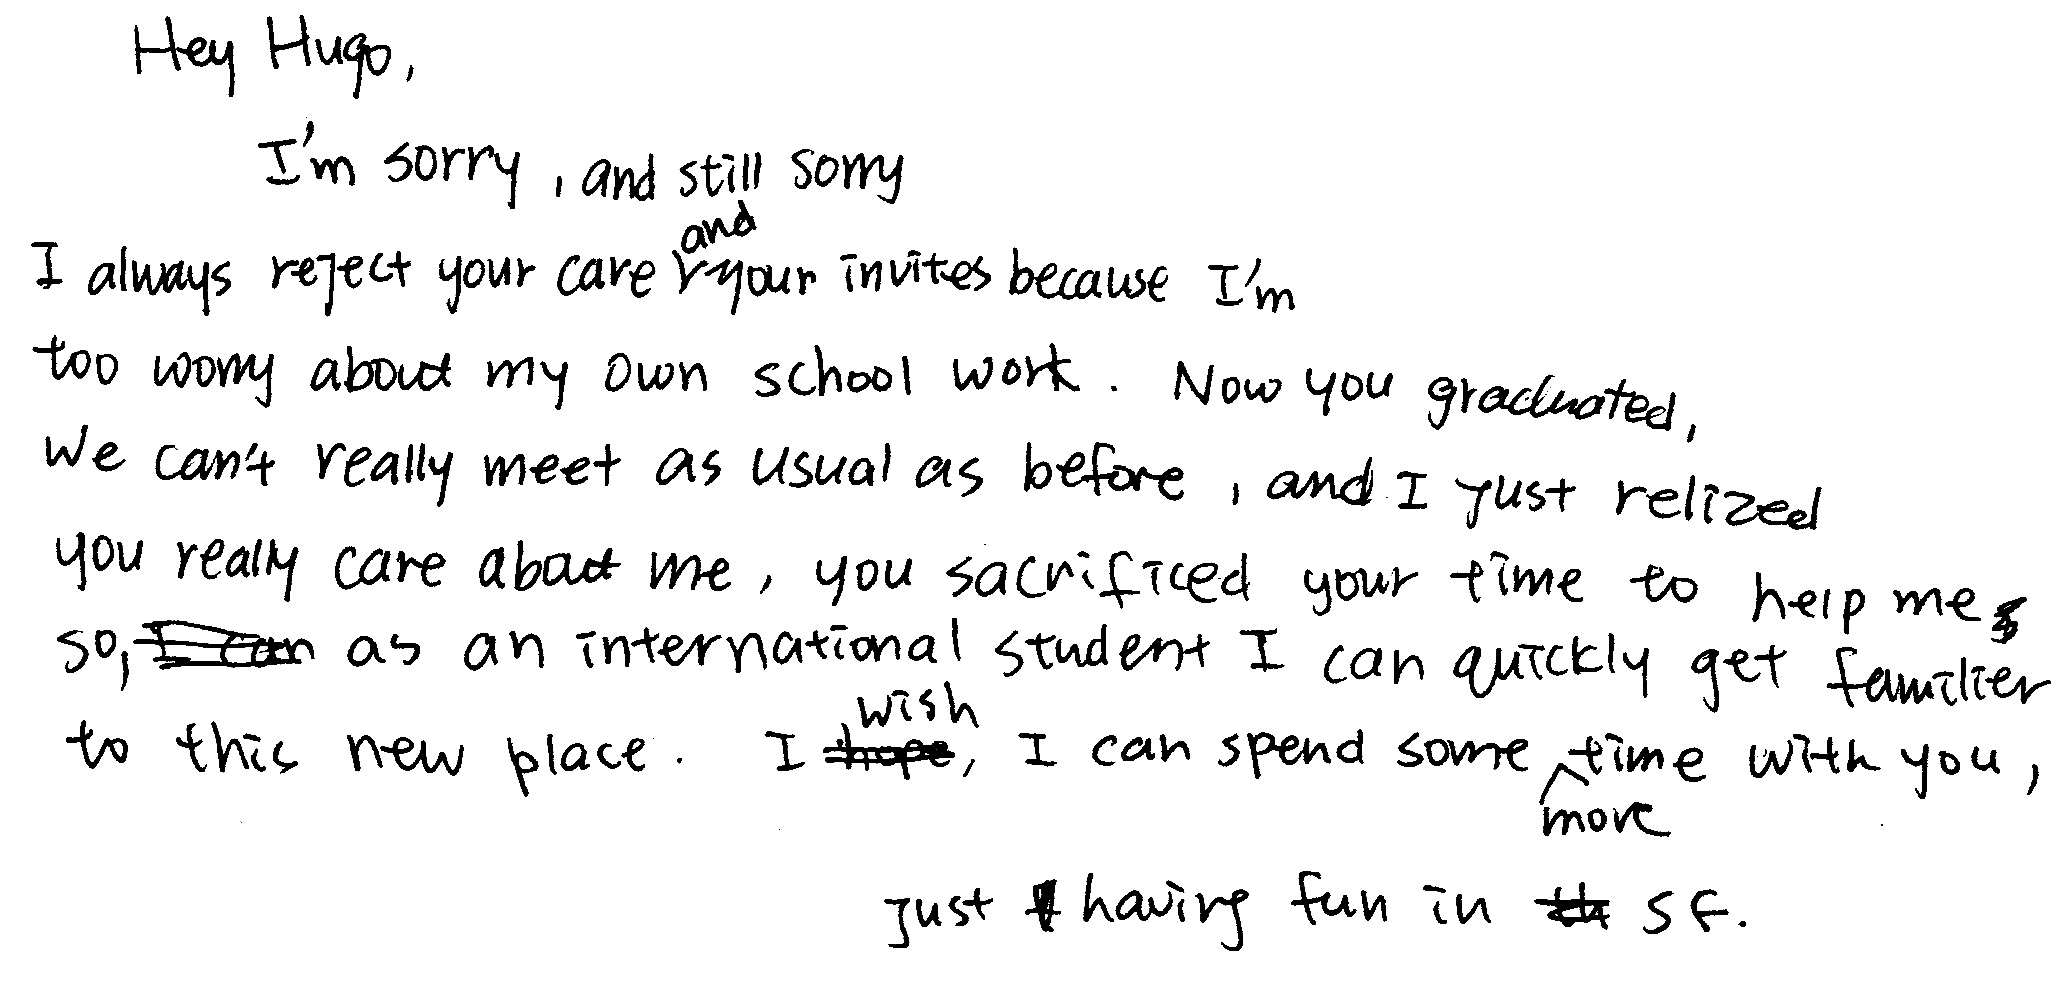 Hey Hugo,
I'm sorry, and still sorry
I always reject your care and your invites because I'm
too worry about my own school work. Now you graduated,
We can't really meet as usual as before, and I just relized
you really care about me, you sacrificed your time to help me
so, I can as an international student I can quickly get familier
to this new place. I hope wish, I can spend some more time with you,
just having fun in SF.